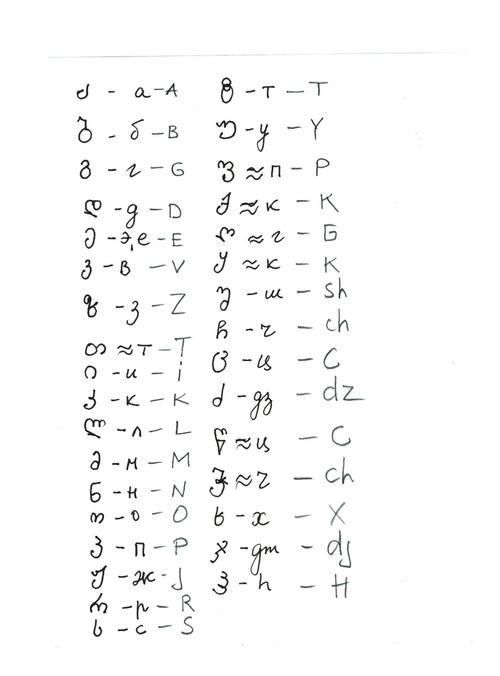 ა - а - A
ბ - б - B
გ - г - G
დ - д - D
ე - э,е - E
ვ - в - V
ზ - з - Z
თ ≈ т - T
ი - и - i
კ - к - K
ლ - л - L
მ - м - M
ნ - н - N
ო - о - O
პ - п - P
ჟ - ж - J
რ - р - R
ს - с - S
ტ - т - T
უ - у - Y
ფ ≈ п - P
ქ ≈ к - K
ღ ≈ г - G
ყ ≈ к - K
შ - ш - sh
ჩ - ч - ch
ც - ц - C
ძ - дз - dz
წ ≈ ц - C
ჭ ≈ ч - ch
ხ - х - X
ჯ - дж - dj
ჰ - h - H